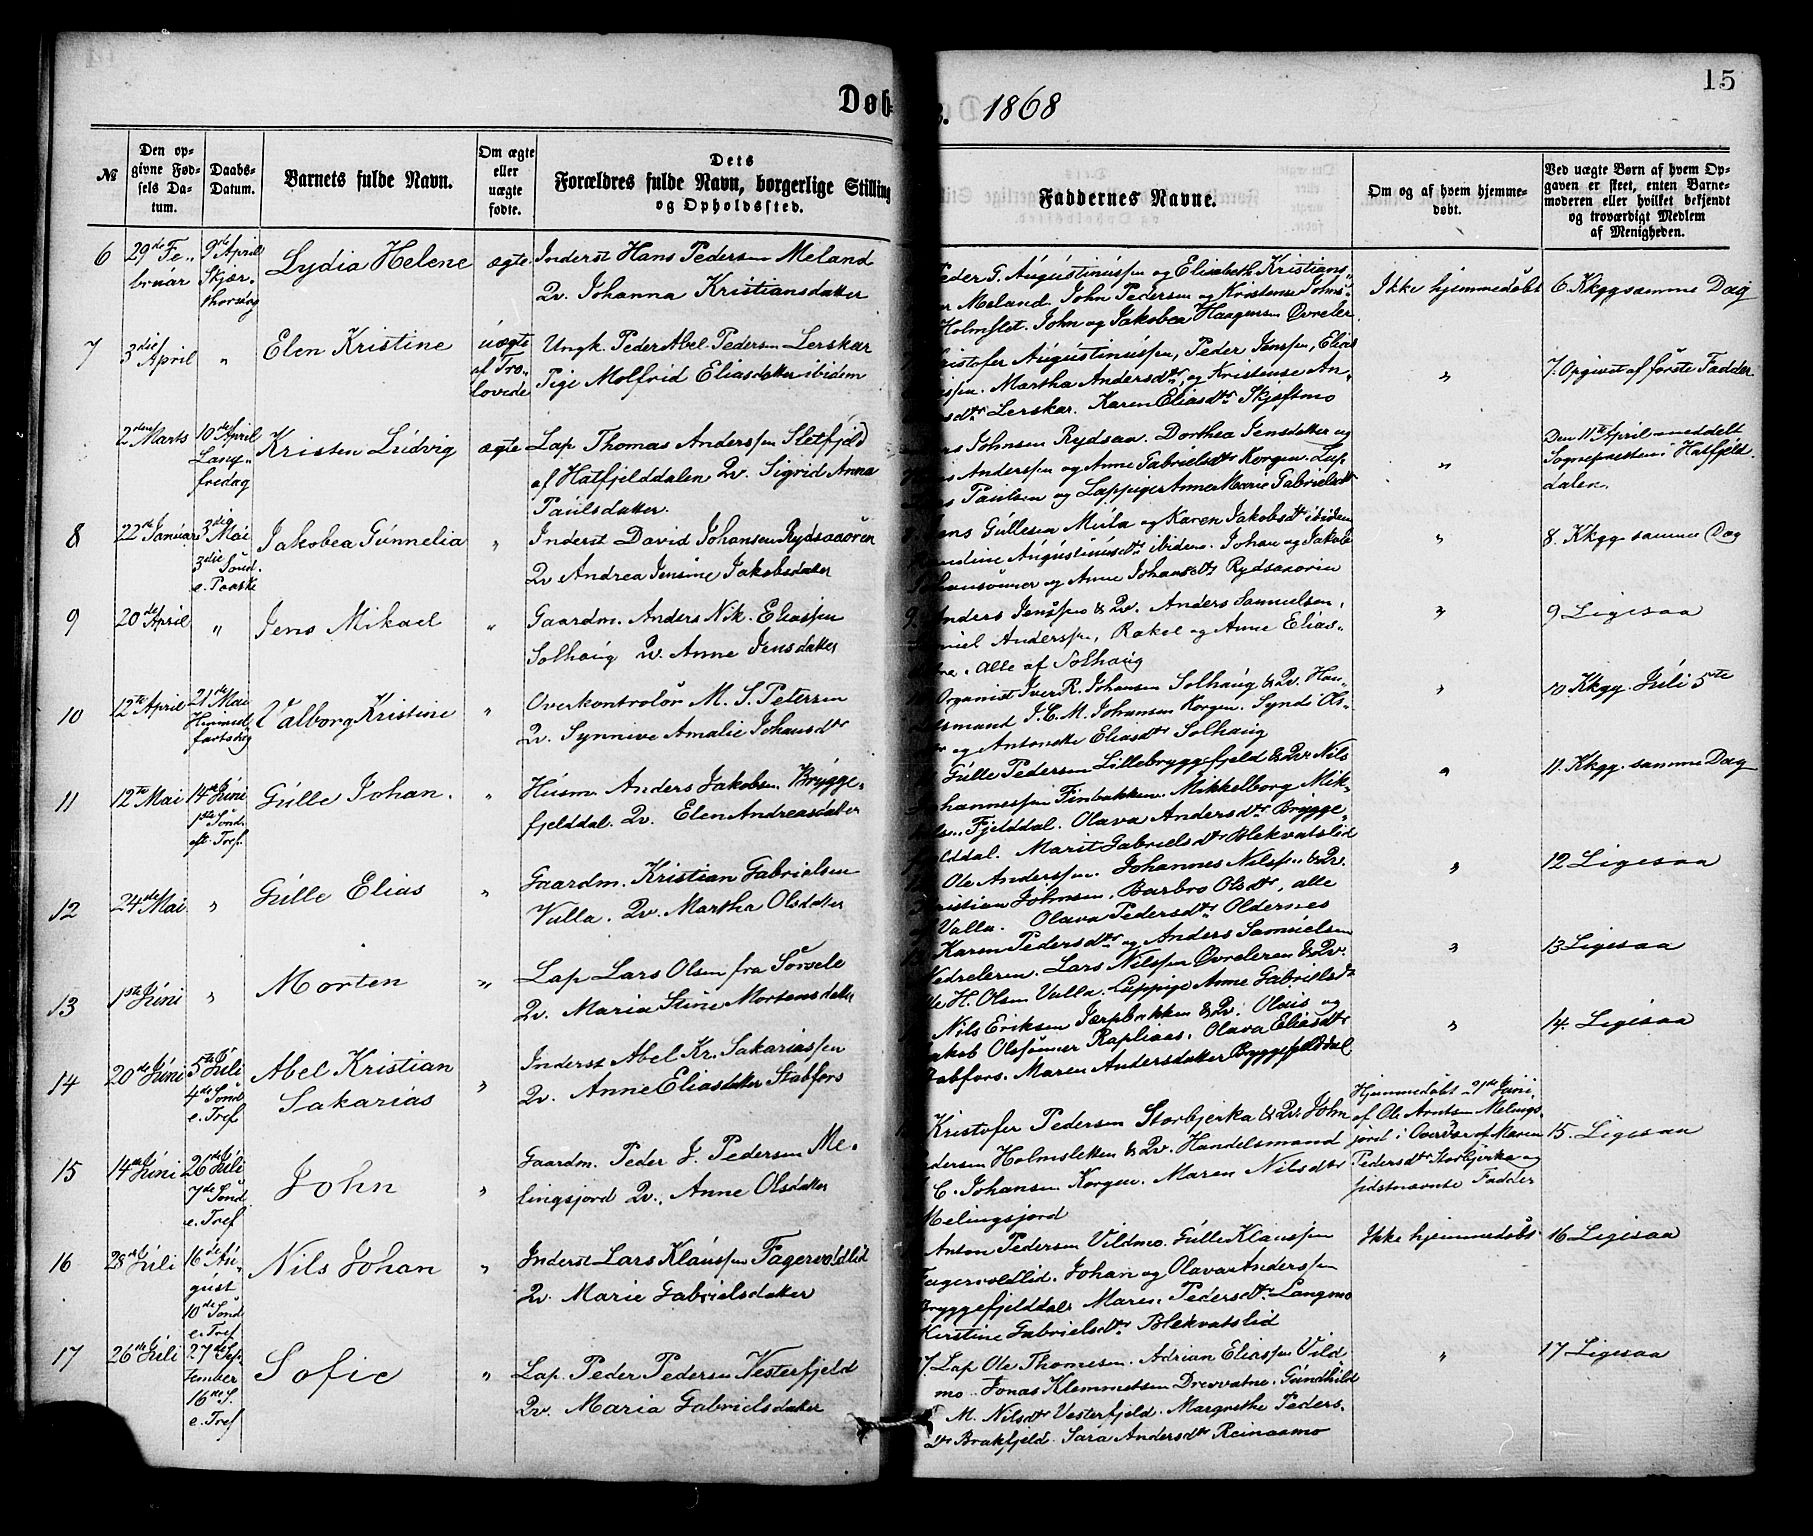 Døb-
te. 1868
15
№
Den op-
givne Fød-
sels Da-
tum.
Daabs-
Datum.
Barnets fulde Navn.
Om ægte
eller
uægte
fødte.
Dets
Forældres fulde Navn, borgerlige Stilling
og Opholdssted.
Faddernes Navne.
Om og af hvem hjemme-
døbt.
Ved uægte Børn af hvem Op-
gaven er skeet, enten Barne-
moderen eller hvilket bekjendt
og troværdigt Medlem
af Menigheden.
6
29de Fe-
bruar
9de April
Skjær-
thorsdag
Lydia Helene
ægte
Inderst Hans Pedersen Meland
Qv. Johanna Kristiansdatter
Peder G. Augustinussen og Elisabeth Kristians-
Meland. John Pedersen og Kristense Johns-
Holmslet. John og Jakobea Haagensen Øvreler
Ikke hjemmedøbt
6. Kkgg samme Dag
7
3die April
"
Elen Kristine
uægte
af Tro-
lovede
Ungk. Peder Abel Pedersen Lerskar
Pige Molfrid Eliasdatter ibidem
Kristofer Augustinussen, Peder Jenssen, Elias
Martha Andersdtr, og Kristense An-
dersdtr Lerskar. Karen Eliasdtr Skjeftmo
"
7. Opgivet af første Fadder
2den Marts
10de April
Lang-
fredag
Kristen Ludvig
ægte
Lap Thomas Anderssen Sletfjeld
af Hatfjelddalen Qv. Sigrid Anna
Paulsdatter.
Johnsen Rydsaa. Dorthea Jensdatter og
Anderssen og Anne Gabrielsdtr Korgen. Lap
Paulsen og Lappiger Anne Marie Gabrielsdtr
"
Den 11te April meddelt
Sognepresten i Hatfjeld
dalen.
8
22de Januar
3die Mai
3die Sønd.
e. Paaske
Jakobea Gunnelia
"
Inderst David Johansen Rydsaaøren
Qv Andrea Jensine Jakobsdatter
Jens Gullesen Mula og Karen Jakobsdtr ibidem
Augustinusdtr ibidem. Johan og Jakob
Johansønner og Anne Johansdtr Rydsaaøren
"
8. Kkgg samme Dag
9
20de April
"
Jens Mikael
"
Gaardm. Anders Nik. Eliassen
Solhaug Qv. Anne Jensdatter
9. Anders Jenssen & Qv. Anders Samuelsen,
Anderssen, Rakel og Anne Elias-
alle af Solhaug
"
9 Ligesaa
10
12te April
21de Mai
Himmel-
fartsdag
Valborg Kristine
"
Overkontrolør M. S. Petersen
Qv. Synnive Amalie Johansdtr
Organist Iver R. Johansen Solhaug & Qv. Han-
delsmand I. C. M. Johansen Korgen. Synde Ols-
og Antonette Eliasdtr Solhaug
"
10 Kkgg Juli 5te
11
12te Mai
14de Juni
1ste Sønd.
eft. Tref.
Gulle Johan.
"
Husm. Anders Jakobsen Brygge-
fjelddal. Qv. Elen Andreasdatter
Gulle Pedersen Lillebryggefjeld & Qv. Nils
Johannessen Finbakken. Mikkelborg Mik-
Fjelddal. Olava Andersdtr Brygge-
fjelddal. Marit Gabrielsdtr Blekvatslid
"
11. Kkgg. samme Dag
12
24de Mai
"
Gulle Elias
"
Gaardm. Kristian Gabrielsen
Valla. Qv. Martha Olsdatter
Ole Anderssen. Johannes Nilssen & Qv.
Kristian Johnsen, Barbro Olsdtr, alle
Valla. Olava Pedersdtr Oldernes
"
12 Ligesaa
13
1ste Juni
"
Morten
"
Lap Lars Olsen fra Sorsele
Qv. Maria Stine Mortensdatter
Karen Pedersdtr og Anders Samuelsen
Nedreleren. Lars Nilssen Øvreleren & Qv.
Ole H. Olsen Valla. Lappige Anne Gabrielsdtr
"
13 Ligesaa
14
20de Juni
5te Juli
4de Sønd
e. Tref
Abel Kristian
Sakarias
"
Inderst Abel Kr. Sakariassen
Qv. Anne Eliasdatter Stabfors
Nils Eriksen Jærpbakken & Qv. Olais og
Jakob Olsønner Rapliaas, Olava Eliasdtr
Stabfors. Maren Andersdatter Bryggefjelddal
"
14. Ligesaa
15
14de Juni
26de Juli
7de Sønd
e. Tref
John
"
Gaardm. Peder J. Pedersen Me-
lingsjord Qv. Anne Olsdatter
Kristofer Pedersen Storbjerka & Qv. John
Pedersen Holmsletten & Qv. Handelsmand
C. Johansen Korgen. Maren Nilsdtr
Melingsjord
Hjemmedøbt 21de Juni
af Ole Arntsen Melings-
jord i Overvær af Maren
Pedersdtr Storbjerka og
sidstnævnte Fadder
15. Ligesaa
16
28de Juli
16de Au-
gust
10de Sønd
e. Tref
Nils Johan
"
Inderst Lars Klaussen Fagervoldlid
Qv. Marie Gabrielsdatter
Anton Pedersen Vildmo. Gulle Klaussen
Fagervoldlid. Johan og Olava Anderssen
Bryggefjelddal. Maren Pedersdtr Langmo
Kirstine Gabrielsdtr Blekvatslid
Ikke hjemmedøbt
16 Ligesaa
17
26de Juli
27de Sep-
tember
16de S.
e. Tref
Sofie
"
Lap. Peder Pedersen Vesterfjeld
Qv. Maria Gabrielsdatter
17. Lap Ole Thomesen. Adrian Eliassen Vild
mo. Jonas Klemmetsen Drevvatne. Gundhild
M. Nilsdtr Vesterfjeld. Margrethe Peders-
dtr Brakfjeld. Sara Andersdtr Reinaamo
"
17 Ligesaa